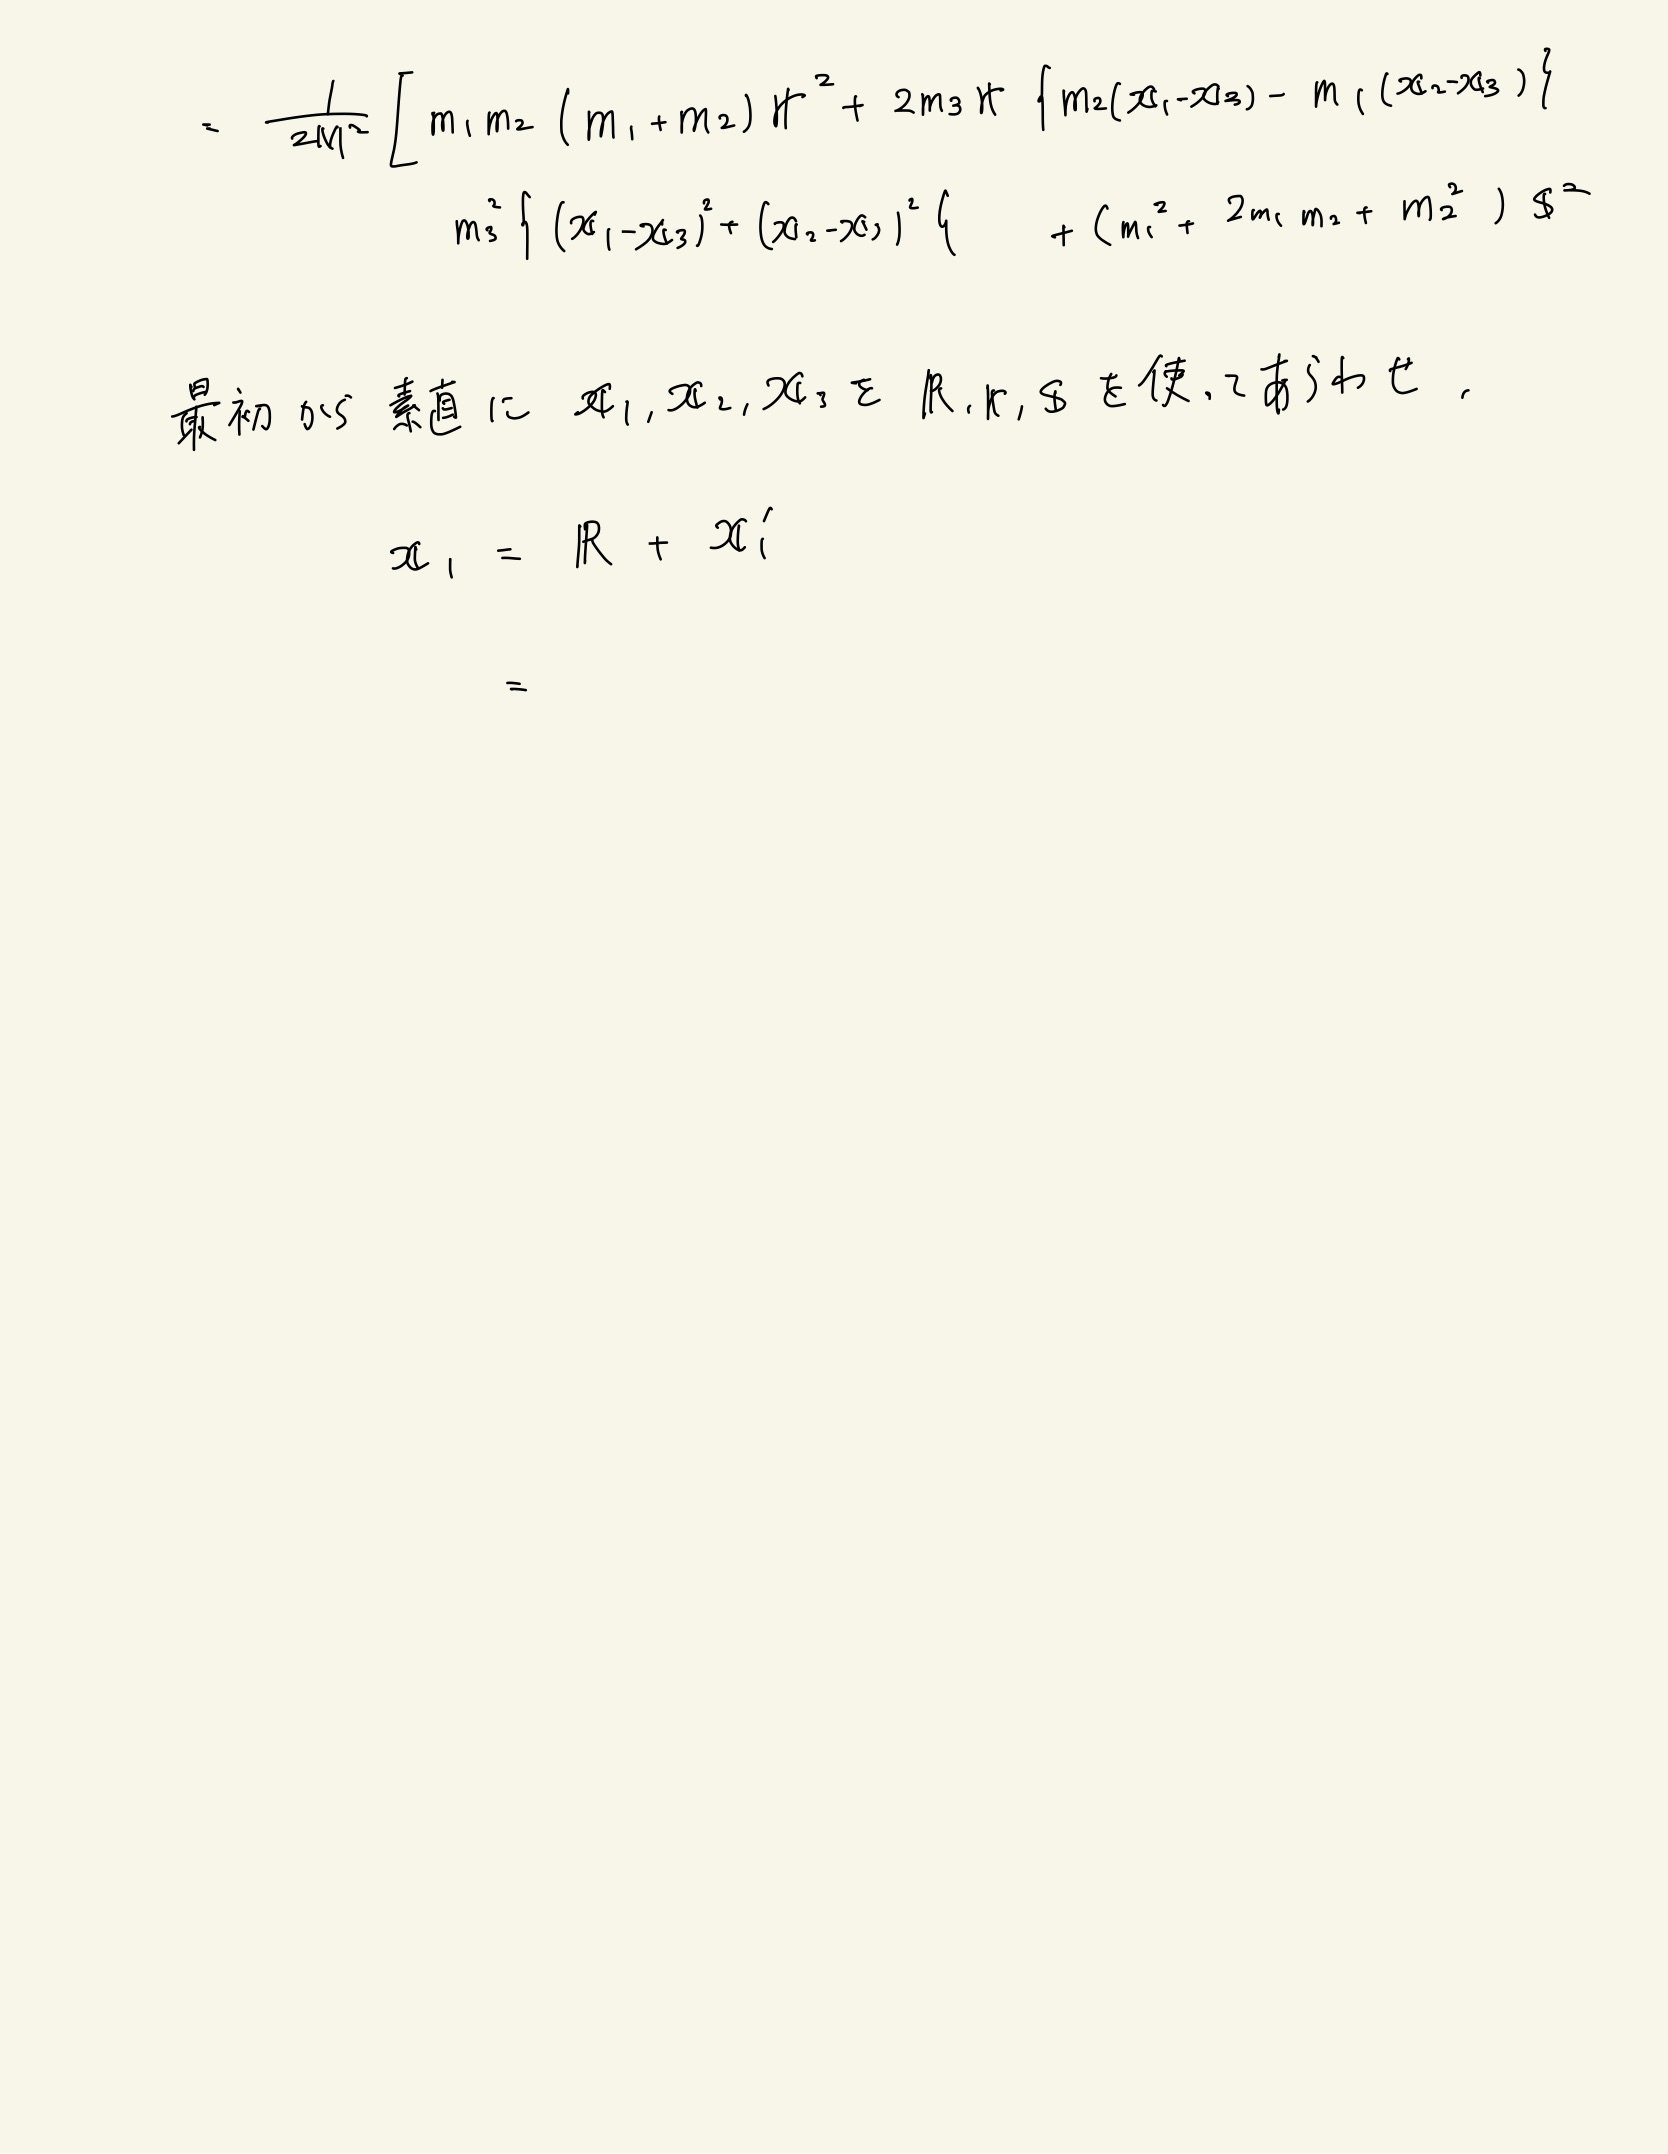 = 1/2M² [ m₁m₂ (m₁+m₂) 𝕣² + 2m₃𝕣 { m₂(𝕩₁-𝕩₃) - m₁(𝕩₂-𝕩₃) }
m₃² { (𝕩₁-𝕩₃)² + (𝕩₂-𝕩₃)² { + (m₁² + 2m₁m₂ + m₂²) 𝕤²
最初から素直に 𝕩₁, 𝕩₂, 𝕩₃ を ℝ, 𝕣, 𝕤 を使ってあらわせ.
𝕩₁ = ℝ + 𝕩₁′
=